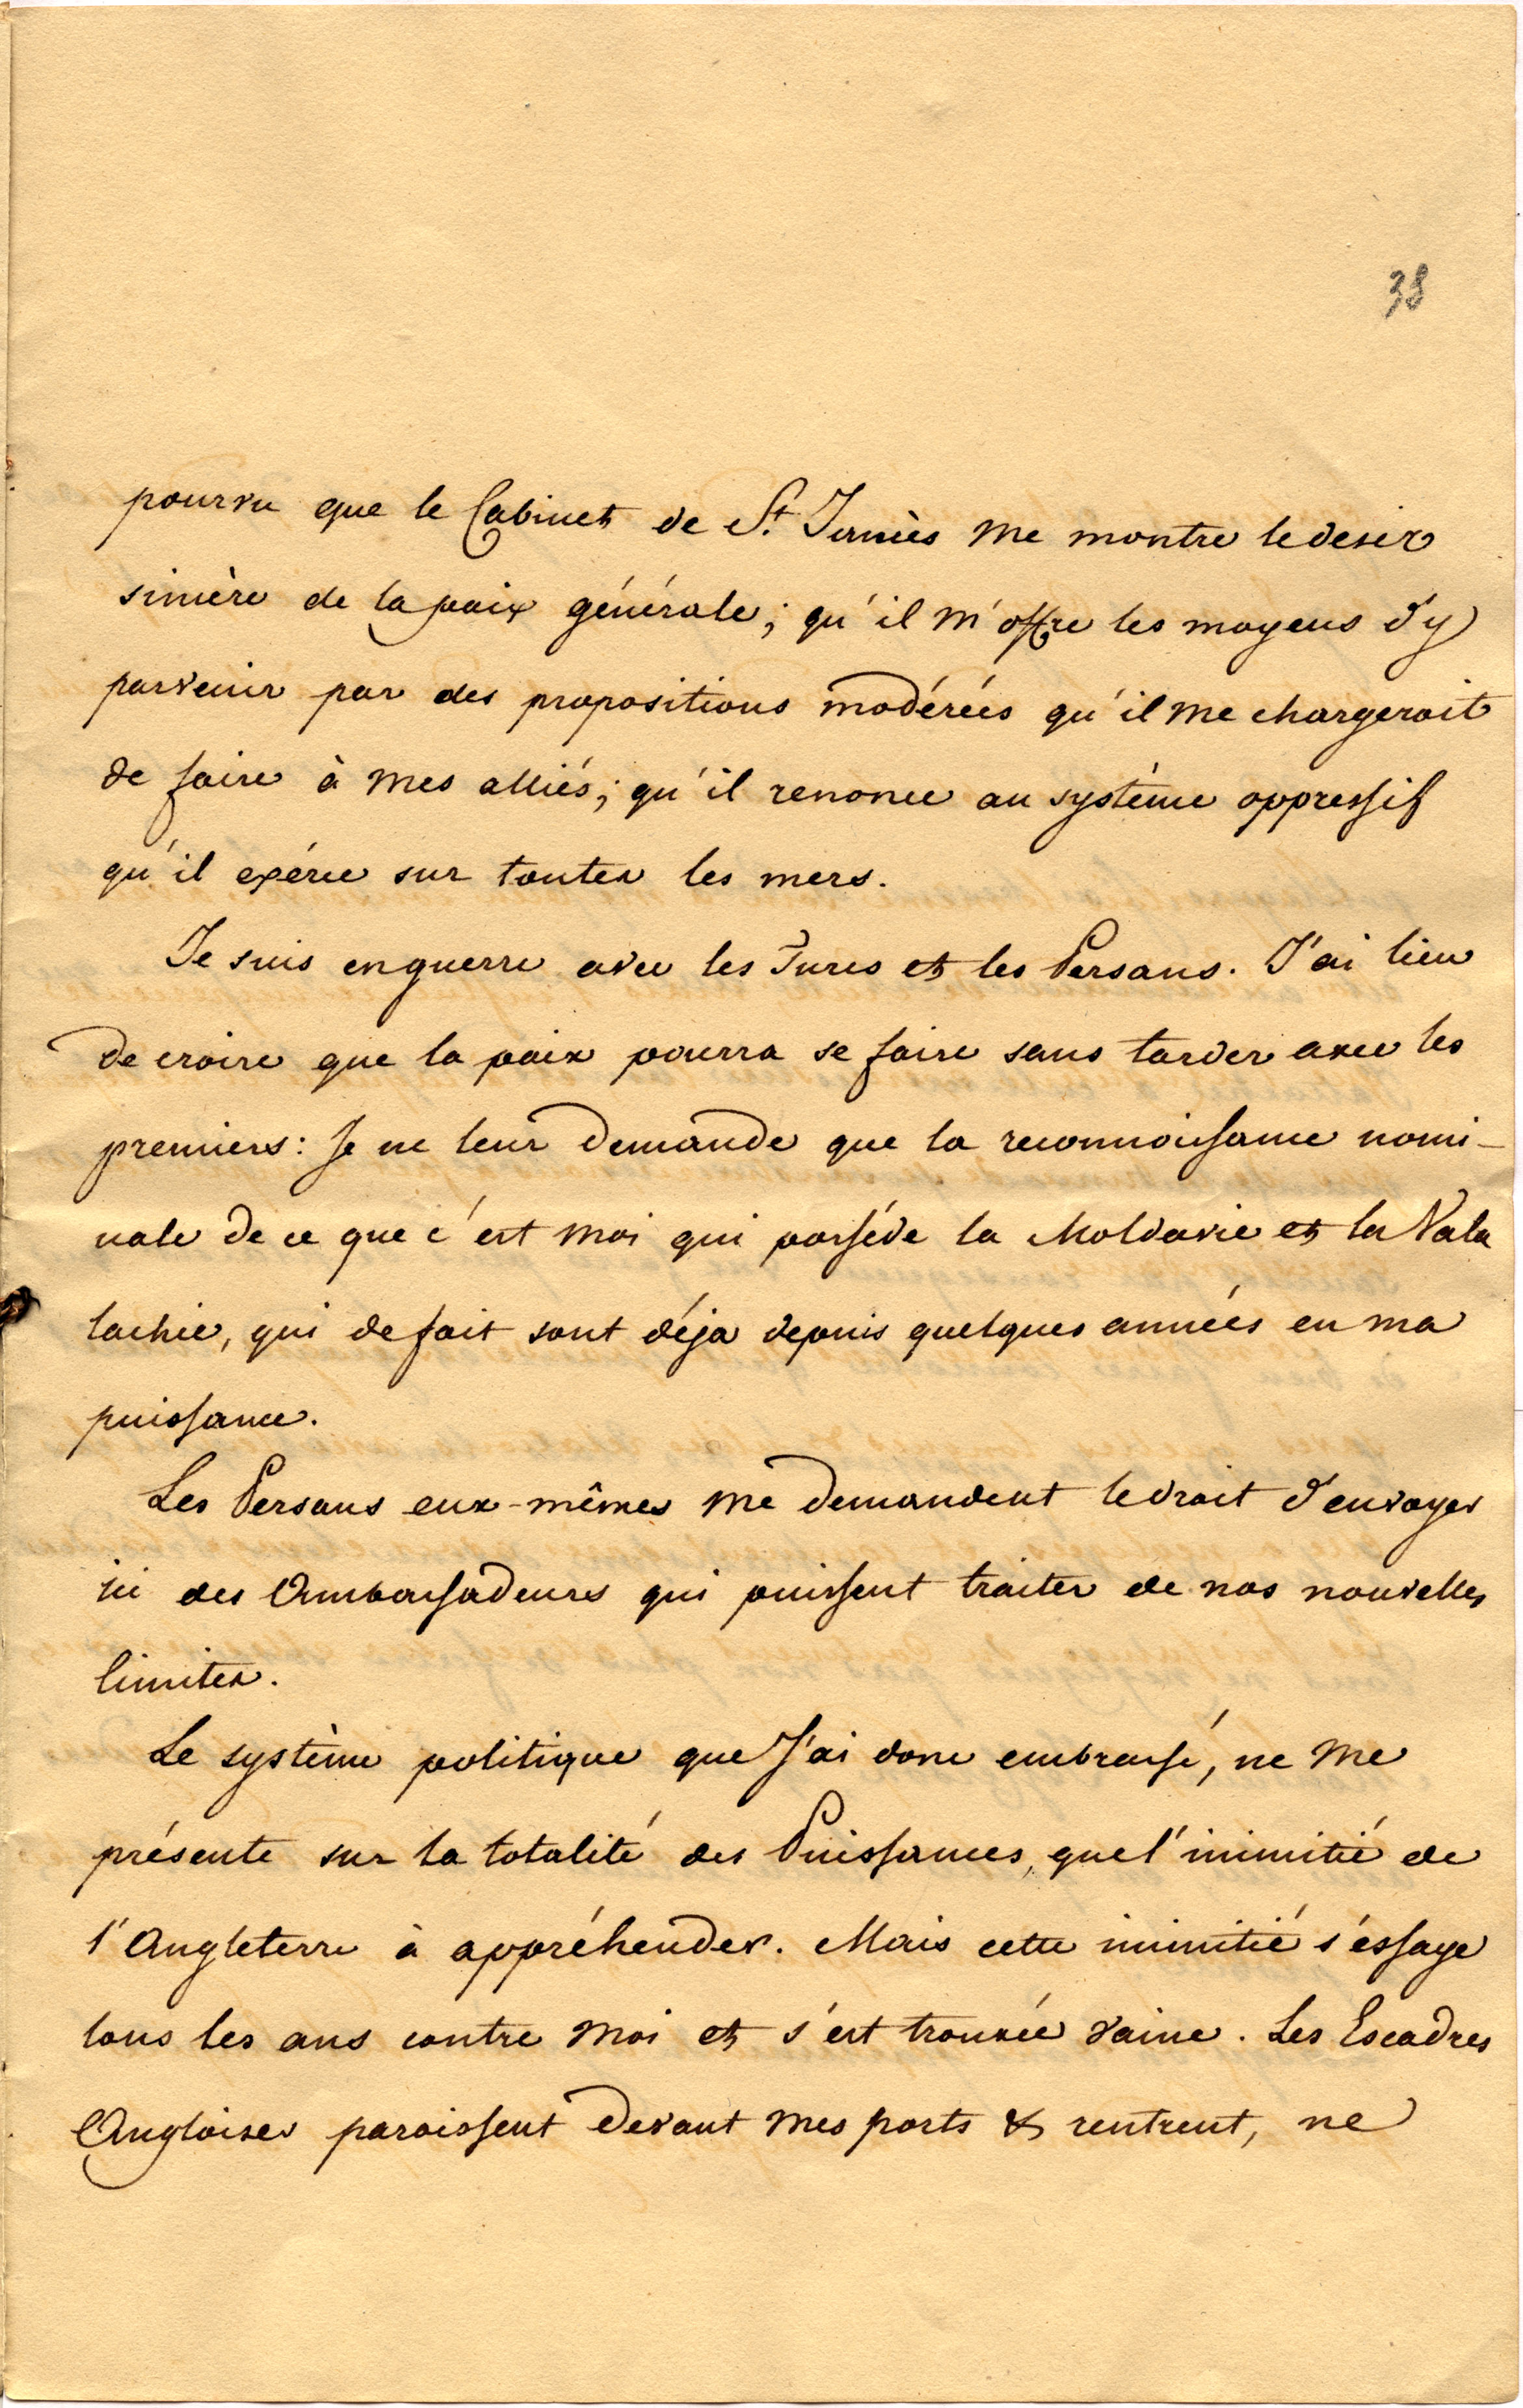 38
pourvu que le Cabinet de St. James me montre le desir
sincère de la paix générale; qu'il m'offre les moyens d'y
parvenir par des propositions modérées qu'il me chargeroit
de faire à mes alliés; qu'il renonce au système oppressif
qu'il exérce sur toutes les mers.
Je suis en guerre avec les Turcs et les Persans. J'ai lieu
de croire que la paix pourra se faire sans tarder avec les
premiers: Je ne leur demande que la reconnoissance nomi-
nale de ce que c'est moi qui posséde la Moldavie et la Vala
lachie, qui de fait sont déja depuis quelques années en ma
puissance.
Les Persans eux-mêmes me demandent le droit d'envoyer
ici des Ambassadeurs qui puissent traiter de nos nouvelles
limites.
Le système politique que J'ai donc embrassé, ne me
présente sur la totalité des Puissances, que l'inimitié de
l'Angleterre à appréhender. Mais cette inimitié s'éssaye
tous les ans contre moi et s'est trouvée vaine. Les Escadres
Angloises paroissent devant mes ports & rentrent, ne